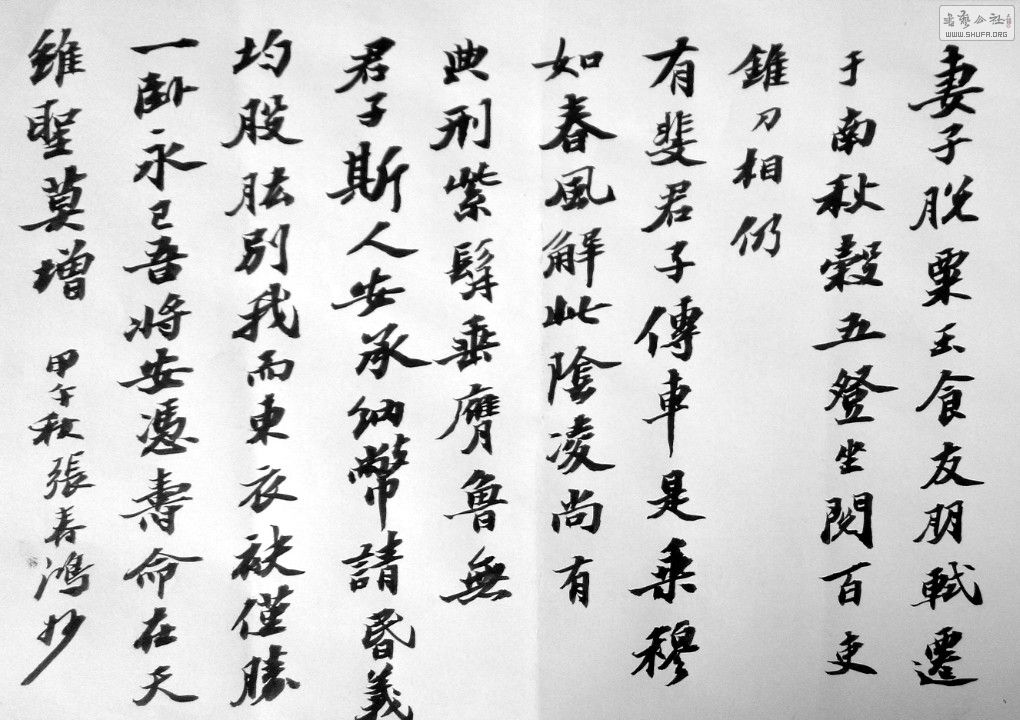 妻子脫粟玉食友朋軾遷
于南秋穀五登坐閱百吏
錐刀相仍
有斐君子傳車是乘穆
如春風解此陰凌尚有
典刑紫髯垂膺魯無
君子斯人安承納幣請昏義
均股肱別我而東衣袂僅勝
一臥永已吾將安憑壽命在天
雖聖莫增 甲午秋張春鴻妙
書藝公社
WWW.SHUFA.ORG